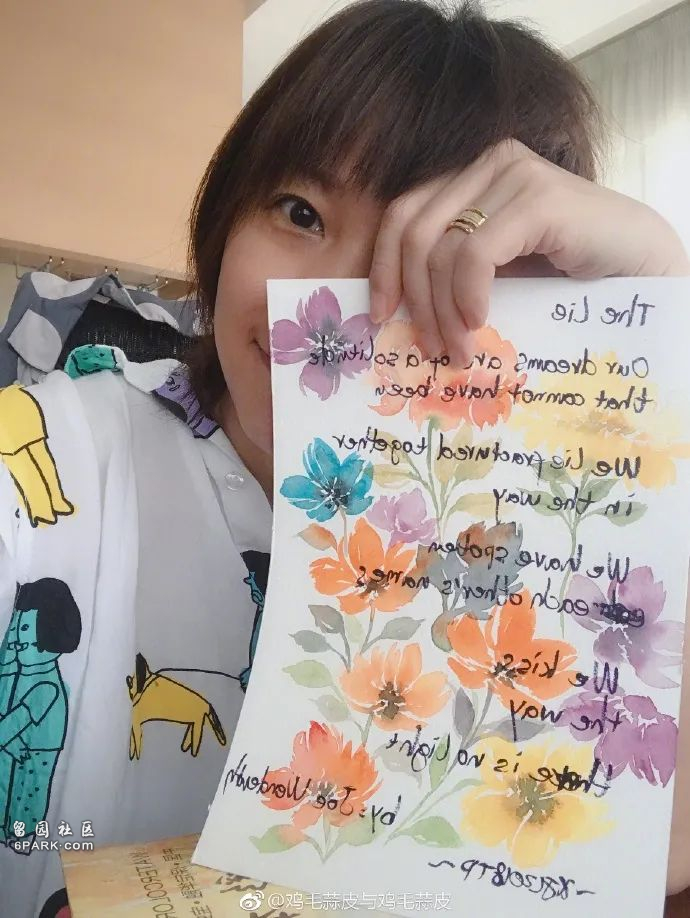 The Lie
Our dreams are of a solitude
that cannot have been
We lie fractured together
in the way
We have spoken
each other's names
We kiss
the way
there is no light
by: Joe Wenderoth
留园社区
6PARK.COM
@鸡毛蒜皮与鸡毛蒜皮